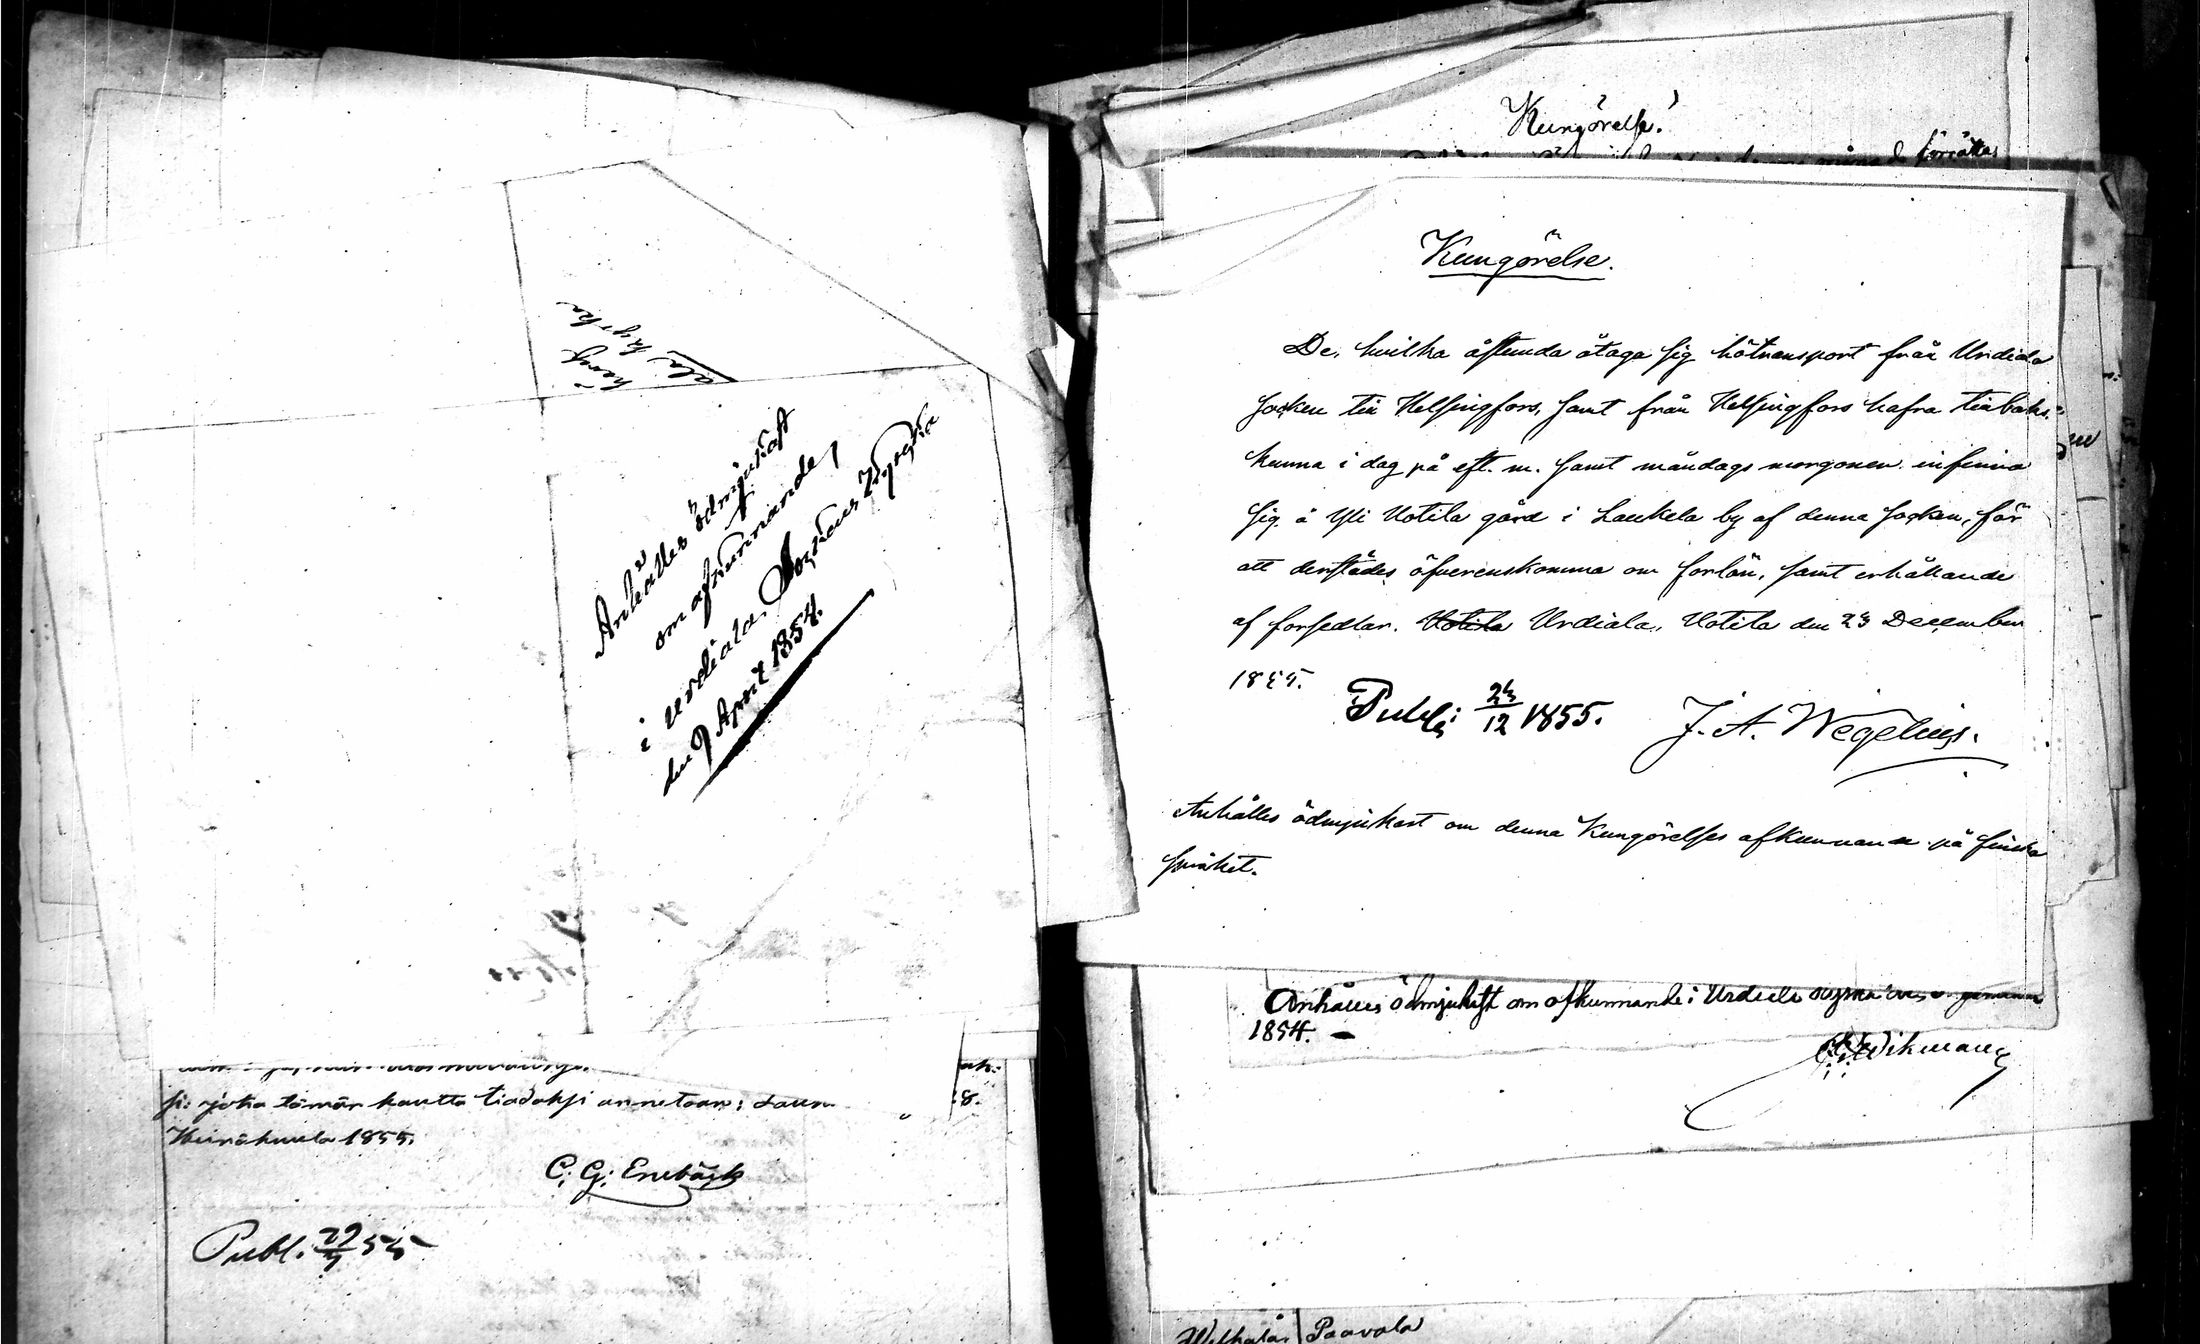 Anhålles ödmjukast
om afkunnande
i Urdiala Sockens Kyrka
den 9 April 1854.
si: joka tämän kautta tiadoksi annetaan: Laun
Heinäkuula 1855.
C: G: Enebäck
Publ. 29/7 55
Kungörelse.
förrättas
Kungörelse.
De, hvilka åstunda åtaga sig hötransport från Urdiala
Socken till Helsingfors, samt från Helsingfors hafra tillbaka,
kunna i dag på eft. m. samt måndags morgonen infinna
sig å Yli Uotila gård i Laukela by af denna Socken, för
att derstädes öfverenskomma om forlön, samt erhållande
af forsedlar. Uotila Urdiala, Uotila den 23 December
1855.
Publ: 23/12 1855.
J. A. Wegelius.
Anhålles ödmjukast om denna Kungörelses afkunnande på finska
språket.
Anhålles ödmjukast om afkunnande i Urdiala
1854. —
Wikman
Paavola